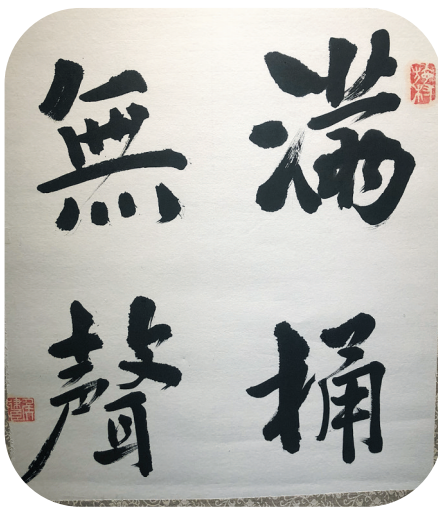 滿桶
無聲